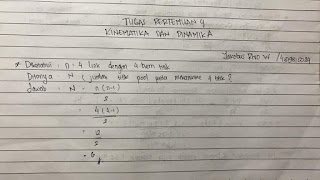 TUGAS PERTEMUAN 4
KINEMATIKA DAN DINAMIKA
* Diketahui : n = 4 link dengan 4 buah titik
Ditanya : N (jumlah titik pool pada mekanisme 4 titik ?
Jawab : N = n (n-1)
2
= 4 (4-1)
2
= 12
2
= 6